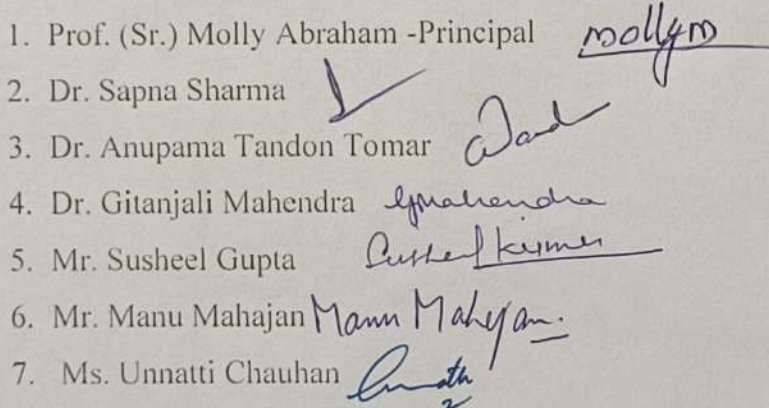 1. Prof. (Sr.) Molly Abraham -Principal mollym
2. Dr. Sapna Sharma
3. Dr. Anupama Tandon Tomar
4. Dr. Gitanjali Mahendra Gmahendra
5. Mr. Susheel Gupta Susheel kumar
6. Mr. Manu Mahajan Manu Mahajan.
7. Ms. Unnatti Chauhan